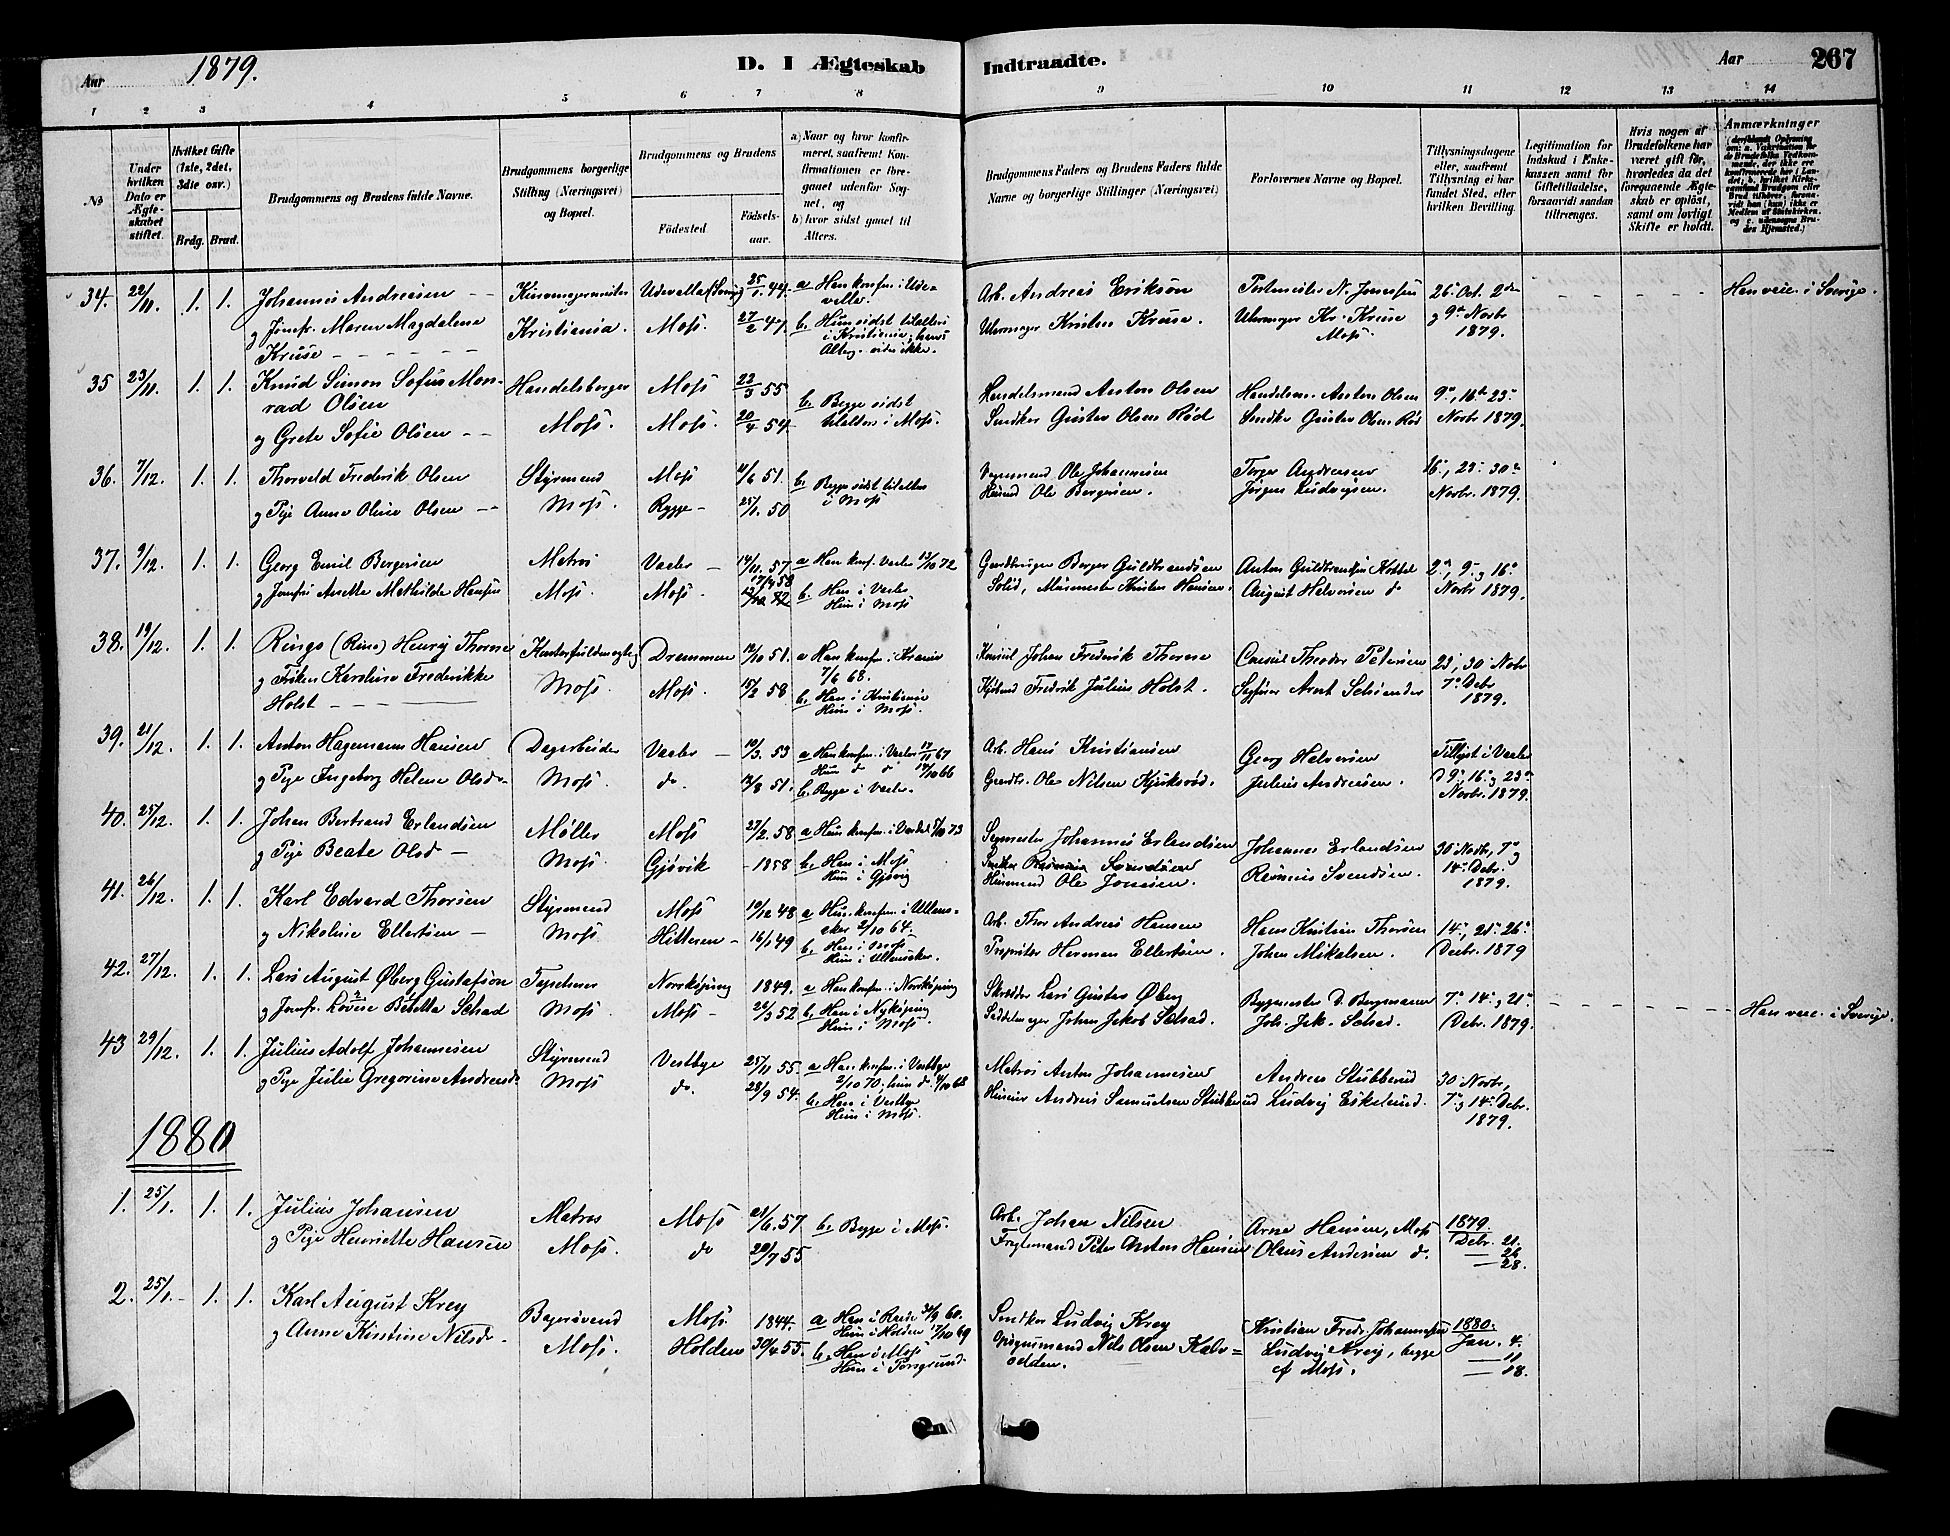 Aar 1879. D. I Ægteskab Indtraadte. Aar 267
1 2 3 4 5 6 7 8 9 10 11 12 13 14
No
Under hvilken Dato er Ægteskabet stiftet.
Hvilket Gifte (1ste, 2det, 3die osv.)
Brdg. Brud.
Brudgommens og Brudens fulde Navne.
Brudgommens borgerlige Stilling (Næringsvei) og Bopæl.
Brudgommens og Brudens
Födested.
Födsels-aar.
a) Naar og hvor konfirmeret, saafremt Konfirmationen er foregaaet udenfor Sognet, og
b) hvor sidst gaaet til Alters.
Brudgommens Faders og Brudens Faders fulde Navne og borgerlige Stillinger (Næringsvei)
Forlovernes Navne og Bopæl.
Tillysningsdagene eller, saafremt Tillysning ei har fundet Sted, efter hvilken Bevilling.
Legitimation for Indskud i Enkekassen samt for Giftetilladelse, forsaavidt saadan tiltrænges.
Hvis nogen af Brudefolkene har været gift før, hvorledes da det foregaaende Ægteskab er opløst, samt om lovligt Skifte er holdt.
Anmærkninger
34. 22/11. 1. 1. Johannes Andreasen Udevalla (Sverig) 25/1. 44. a Han konf. i Udevalla. Arb. Andreas Erikson Postmester N. Jonassen 26. Oct. 2den Han vacc. i Sverige.
g Jomfr. Maren Magdalene Kruse Kristiania. Moss. 27/2 47. b. Hun sidst til alters i Kristiania, hans Alterg. vides ikke. Uhrmager Kristen Kruse. Uhrmager Kr. Kruse Moss. g 9de Novbr 1879.
35 23/11. 1. 1. Knud Simon Sofus Monrad Olsen Handelsborger Moss 22/3 55 b. Begge sidst tilalters i Moss. Handelsmand Anton Olsen Handelsm. Anton Olsen 9de, 16de 23de
g Grete Sofie Olsen Moss. Moss. 20/4 54. Snedker Gustav Olsen Röd Snedker Gustav Olsen Röd Novbr 1879.
36. 7/12. 1. 1. Thorvald Frederik Olsen Styrmand Moss 11/6 51. b. Begge sidst tilalters i Moss Vognmand Ole Johannesen Torger Andreasen 16de, 23de 30de
g Pige Anne Oline Olsen Moss. Rygge 25/1. 50 Husmd Ole Borgersen. Jörgen Ludvigsen. Novbr. 1879.
37. 9/12. 1. 1. Georg Emil Borgersen Matros Vaaler 14/11. 57 a Han konf. Vaaler 13/10 72 Gaardbruger Borger Guldbrandsen Anton Guldbrandsen 2den, 9de g 16de
g Jomfr Anette Mathilde Hansen Moss. Moss. 17/4 58 b. Han i Vaaler Hun i Moss Murmester Kristen Hansen. August Halvorsen do Novbr 1879.
38. 19/12. 1. 1. Ringo (Rino) Henry Thorne Kontorfuldmægtig Drammen 12/10 51. a Han konf. i Krania 7/6 68. Konsul Johan Frederik Thorne Consul Theodor Petersen 23, 30 Novbr
g Fröken Karoline Frederikke Holst Moss. Moss. 15/2 58 b. Han i Kristiania Hun i Moss. Kjöbmd Fredrik Julius Holst. Sagförer Arnt Schiander 7de Debr 1879.
39. 21/12. 1. 1. Anton Hagemann Hansen Dagarbeider Vaaler 10/3. 53 a Han konf. i Vaaler 17/11 67 Hun do do 17/10 66 Arb. Hans Kristiansen Georg Halvorsen Tillyst i Vaaler
g Pige Ingeborg Helene Olsd. Moss. do. 14/8 51. b. Begge i Vaaler. Gaardbr. Ole Nilsen Kjuksröd. Julius Andreasen. D. 9de, 16de g 23de Novbr. 1879.
40. 25/12. 1. 1. Johan Bertrand Erlandsen Møller Moss 27/2. 58 a Hun konf. i Vardal 5/10 73 Johannes Erlandsen Johannes Erlandsen 30 Novbr, 7de g
g Pige Beate Olsd Moss. Gjövik 1858 b. Han i Moss Hun i Gjövig Husmand Ole Jonsen. Rasmus Svendsen. 14de Debr. 1879.
41. 26/12. 1. 1. Karl Edvard Thorsen Styrmand Moss 19/12 48 a Hun konf. i Ullensaker 2/10 64. Arb. Thor Andreas Hansen Hans Kristian Thorsen 14de, 21de 26de
g Nikoline Ellertsen Moss. Hitteren 16/1 49 b. Han i Moss Hun i Ullensaker. Proprietær Herman Ellertsen. Johan Mikalsen. Decbr. 1879
42. 27/12. 1. 1. Lars August Øberg Gustafson Tapetserer Norrköping 1849. a Han konf. i Norrköping Skrædder Lars Gustav Øberg Bygmester D. Bergmann 7de 14de g 21de Han vacc. i Sverige.
g Jomfr. Lovise Betzella Schad Moss. Moss 26/3 52 b. Han i Nyköping Hun i Moss. Sadelmager Johan Jakob Schad. Joh. Jak. Schad. Debr. 1879.
43 29/12. 1. 1. Julius Adolf Johannesen Styrmand Vestbye 25/11 55. a Han konf. i Vestbye 2/10 70, hun do. 4/10 68 Matros Anton Johannesen Andreas Stubberud 30 Novbr,
g Pige Julie Gregorine Andreasd. Moss do. 28/9 54. b. Han i Vestbye Hun i Moss. Husmd Andreas Samuelsen Stubberud Ludvig Eskelund. 7de g 14de Debr. 1879.
1880
1. 25/1. 1. 1. Julius Johansen Matros Moss 21/6. 57 b. Begge i Moss. Arb. Johan Nilsen Arne Hansen, Moss 1879. Debr. 21.
g Pige Henriette Hansen Moss. do 20/7 55 Fragtemand Peter Anton Hansen Olaus Andersen do. 26. 28.
2. 25/1. 1. 1. Karl August Krey Bogreisende Moss. 1844. a Han i Raade 30/9 60. Hun i Holden 17/10 69 Snedker Ludvig Krey Kristian Fredr. Johannesen 1880. Jan. 4.
g Anne Kirstine Nilsdr. Moss. Holden 30/4 55. b. Han i Moss Hun i Porsgrund. Nils Olsen Kalvodden. Ludvig Krey, begge af Moss. 11 18.